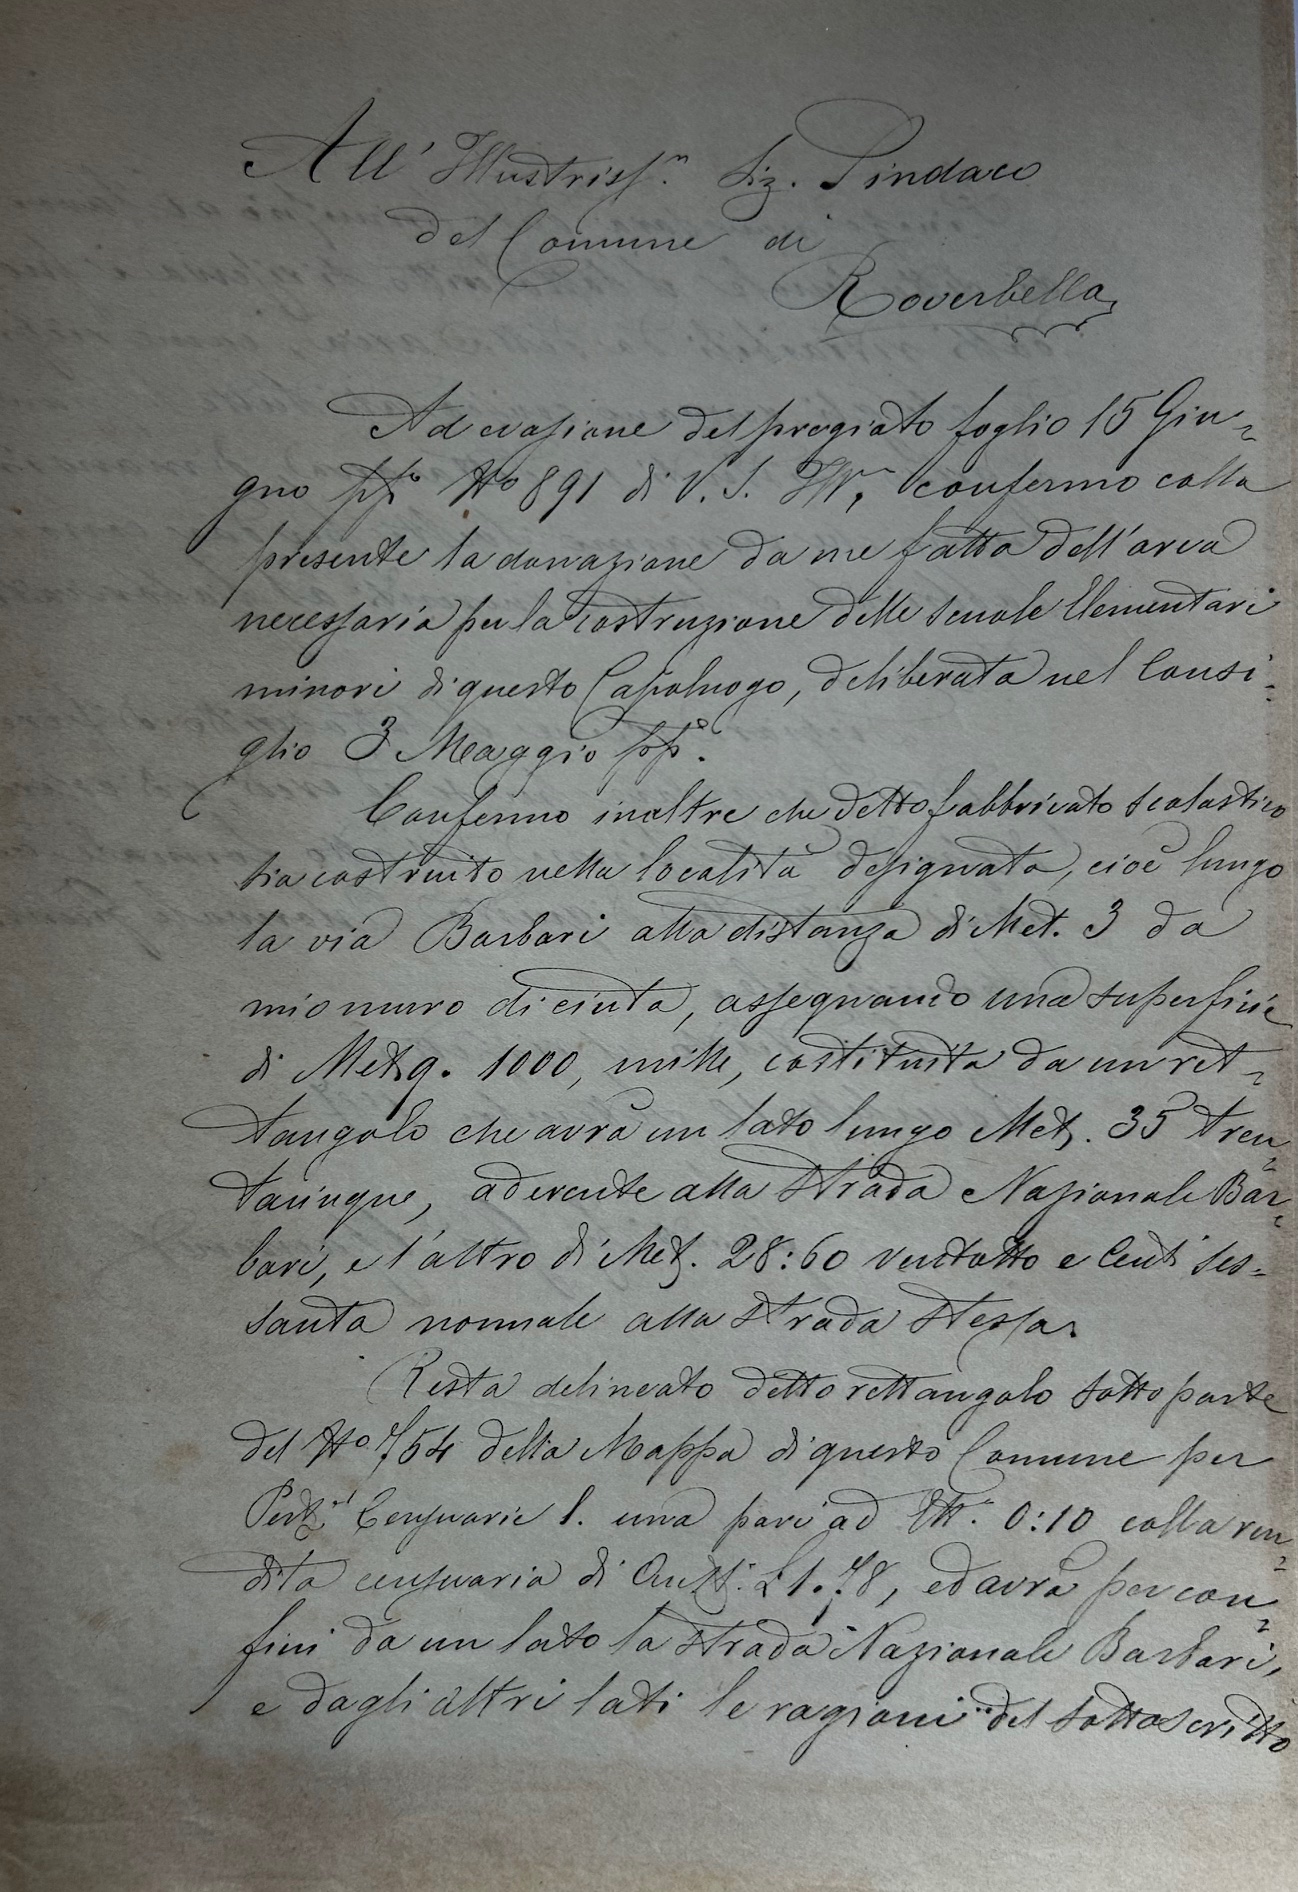 All' Illustriss.º Sig. Sindaco
del Comune di
Roverbella
Ad evasione del pregiato foglio 15 Giu=
gno pº pº Nº 891 di V. S. Ill.ª confermo colla
presente la donazione da me fatta dell'area
necessaria per la costruzione delle scuole Elementari
minori di questo Capoluogo, deliberata nel Consi=
glio 3 Maggio ppº.
Confermo inoltre che detto fabbricato scolastico
sia costruito nella località designata, cioè lungo
la via Barbari alla distanza di Met. 3 da
mio muro di cinta, assegnando una superficie
di Met. q. 1000, mille, costituita da un ret=
tangolo che avrà un lato lungo Met. 35 tren=
tacinque, aderente alla strada Nazionale Bar=
bari, e l'altro di Met. 28:60 ventotto e Centi ses=
santa normale alla strada stessa.
Resta delineato detto rettangolo sotto parte
del Nº 754 della Mappa di questo Comune per
Pert.e Censuarie 1. una pari ad Ett. 0:10 colla ren=
dita censuaria di Aust. £ 1.78, ed avrà per con=
fini da un lato la strada Nazionale Barbari,
e dagli altri lati le ragioni del sottoscritto